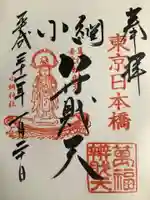 奉拝
東京日本橋
萬福
小網弁財天
平成三十一年一月二十日
小網神社